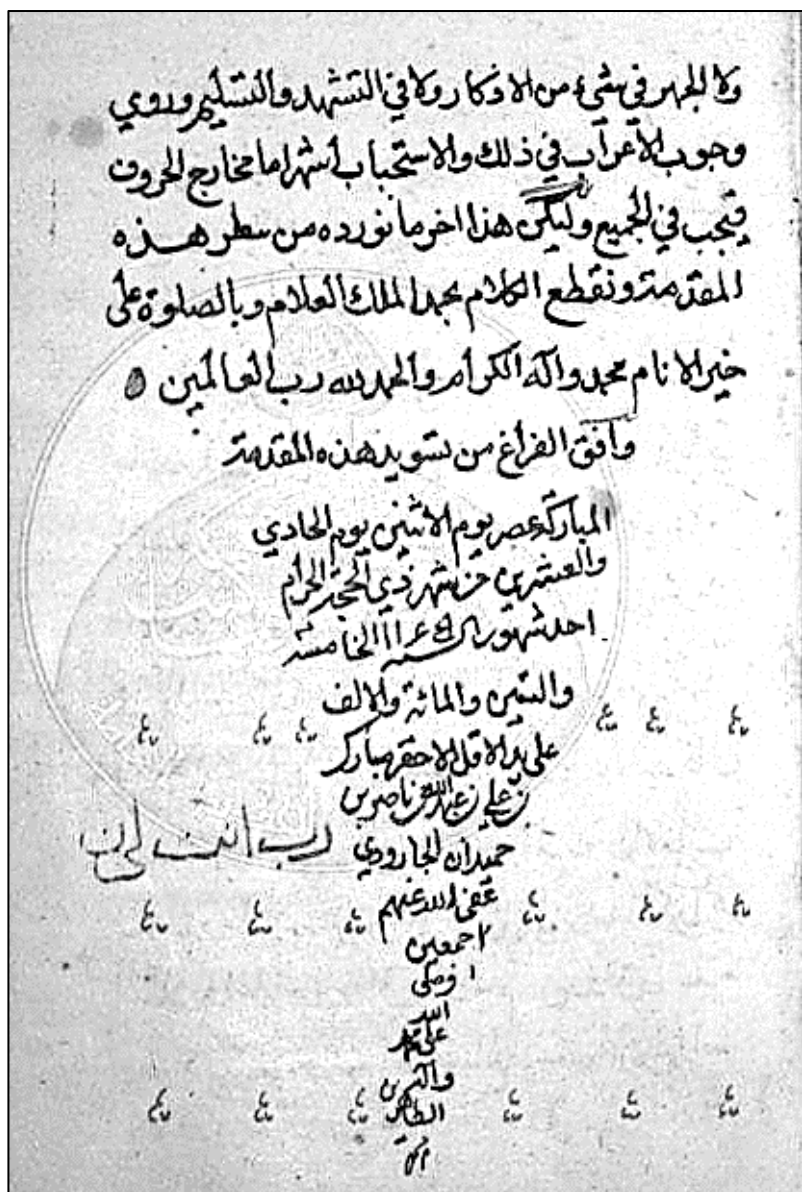 ولا الجهر في شيء من الاذكار ولا في التشهد والتسليم وروي
وجوب الأعراب في ذلك والاستحباب أشهر اما مخارج الحروف
فيجب في الجميع وليكن هذا اخر ما نورده من سطر هذه
المقدمة ونقطع الكلام بحمد الملك العلام وبالصلوة على
خير الانام محمد وآله الكرام والحمد لله رب العالمين
وافق الفراغ من تسويد هذه المقدمة
المباركة عصر يوم الاثنين يوم الحادي
والعشرين من شهر ذي الحجة الحرام
احد شهور الخامسة
والستين والمائة والالف
على يد الاقل الاحقر مبارك
بن علي بن عبدالله بن ناصر بن
حميدان الجارودي
عفى الله عنهم
اجمعين
الله
على محمد
وآله
رب انت